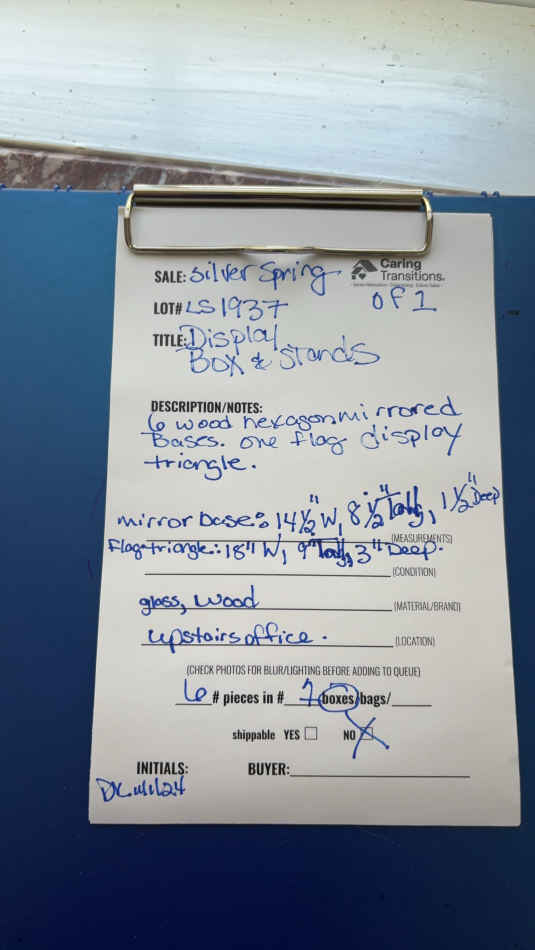 SALE: Silver Spring
Caring
Transitions®
LOT# LS1937
of 1
TITLE: Display
Box & Stands
DESCRIPTION/NOTES:
6 wood hexagon mirrored
Bases. one flag display
triangle.
mirror base: 14 1/2" W, 8 1/2" Tall, 1 1/2" Deep
(MEASUREMENTS)
Flag triangle: 18" W, 9" Tall, 3" Deep.
(CONDITION)
glass, wood (MATERIAL/BRAND)
upstairs office. (LOCATION)
(CHECK PHOTOS FOR BLUR/LIGHTING BEFORE ADDING TO QUEUE)
6 # pieces in # boxes/bags/
shippable YES NO
INITIALS: BUYER: